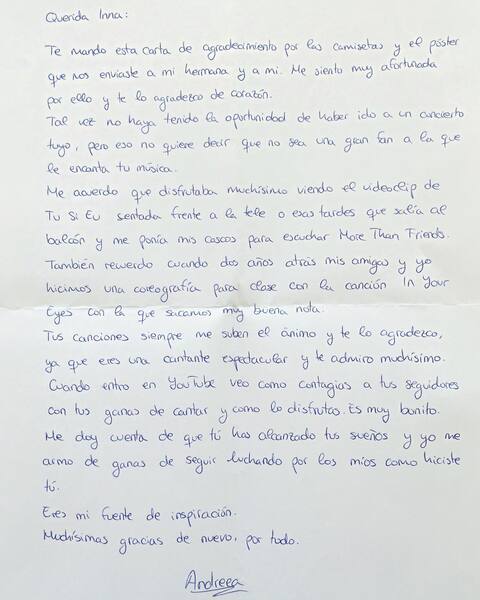 Querida Inna:
Te mando esta carta de agradecimiento por las camisetas y el póster
que nos enviaste a mi hermana y a mi. Me siento muy afortunada
por ello y te lo agradezco de corazón.
Tal vez no haya tenido la oportunidad de haber ido a un concierto
tuyo, pero eso no quiere decir que no sea una gran fan a la que
le encanta tu música.
Me acuerdo que disfrutaba muchísimo viendo el videoclip de
Tu Si Eu sentada frente a la tele o esas tardes que salía al
balcón y me ponía mis cascos para escuchar More Than Friends.
También recuerdo cuando dos años atrás mis amigas y yo
hicimos una coreografía para clase con la canción In Your
Eyes con la que sacamos muy buena nota.
Tus canciones siempre me suben el ánimo y te lo agradezco,
ya que eres una cantante espectacular y te admiro muchísimo.
Cuando entro en YouTube veo como contagias a tus seguidores
con tus ganas de cantar y como lo disfrutas. Es muy bonito.
Me doy cuenta de que tú has alcanzado tus sueños y yo me
armo de ganas de seguir luchando por los míos como hiciste
tú.
Eres mi fuente de inspiración.
Muchísimas gracias de nuevo, por todo.
Andreea